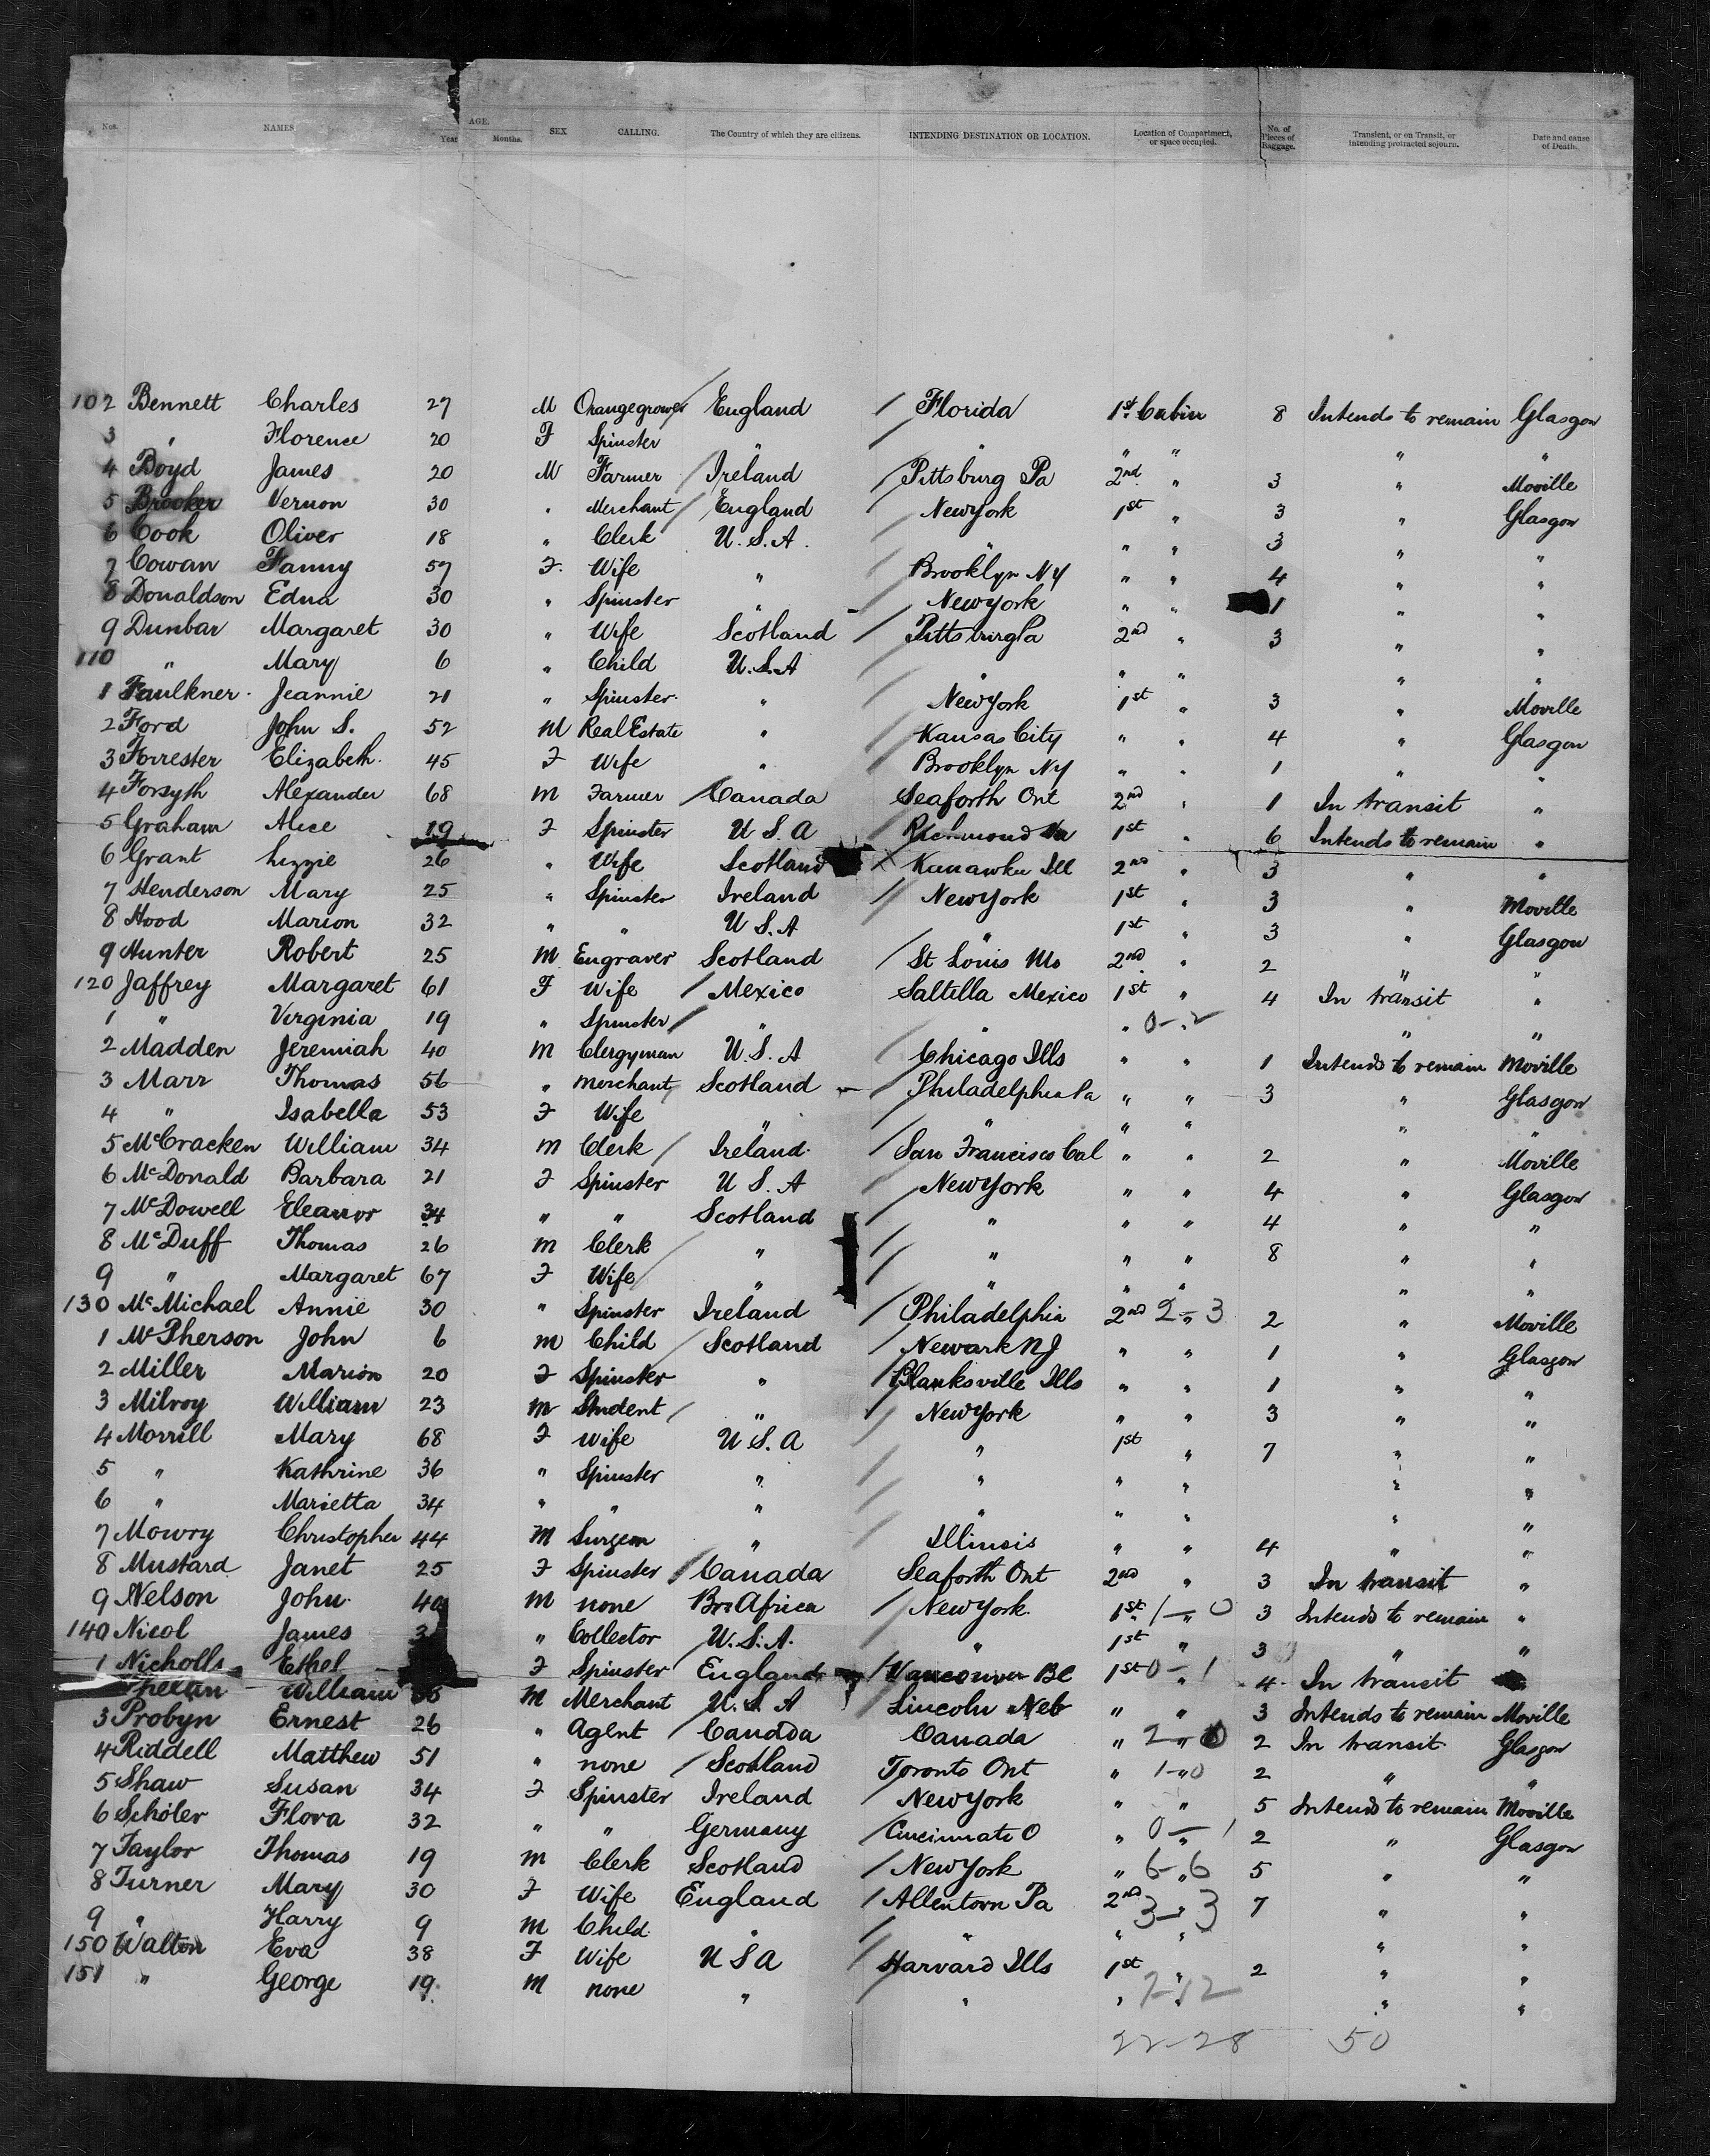 Nos. NAMES AGE. Year Months. SEX CALLING. The Country of which they are citizens. INTENDING DESTINATION OR LOCATION. Location of Compartment, or space occupied. No. of Pieces of Baggage. Transient, or on Transit, or intending protracted sojourn. Date and cause of Death.
102 Bennett Charles 27 M Orangegrower England Florida 1st Cabin 8 Intends to remain Glasgow
3 " Florence 20 F Spinster " " " " " "
4 Boyd James 20 M Farmer Ireland Pittsburg Pa 2nd " 3 " Moville
5 Brooker Vernon 30 " Merchant England NewYork 1st " 3 " Glasgow
6 Cook Oliver 18 " Clerk U.S.A. " " " 3 " "
7 Cowan Fanny 57 F. Wife " Brooklyn NY " " 4 " "
8 Donaldson Edna 30 " Spinster " NewYork " " 1 " "
9 Dunbar Margaret 30 " Wife Scotland Pittsburg Pa 2nd " 3 " "
110 " Mary 6 " Child U.S.A " " " " "
1 Faulkner Jeannie 21 " Spinster " NewYork 1st " 3 " Moville
2 Ford John S. 52 M Real Estate " Kansas City " " 4 " Glasgow
3 Forrester Elizabeth 45 F Wife " Brooklyn NY " " 1 " "
4 Forsyth Alexander 68 M Farmer Canada Seaforth Ont 2nd " 1 In transit "
5 Graham Alice 19 F Spinster U S. A Richmond Va 1st " 6 Intends to remain "
6 Grant Lizzie 26 " Wife Scotland Kanawka Ill 2nd " 3 " "
7 Henderson Mary 25 " Spinster Ireland NewYork 1st " 3 " Moville
8 Hood Marion 32 " " U S. A " 1st " 3 " Glasgow
9 Hunter Robert 25 M Engraver Scotland St Louis Mo 2nd " 2 " "
120 Jaffrey Margaret 61 F Wife Mexico Saltilla Mexico 1st " 4 In transit "
1 " Virginia 19 " Spinster " " " 0-2 " "
2 Madden Jeremiah 40 M Clergyman U.S.A Chicago Ills " " 1 Intends to remain Moville
3 Marr Thomas 56 " Merchant Scotland Philadelphia Pa " " 3 " Glasgow
4 " Isabella 53 F Wife " " " " " "
5 McCracken William 34 M Clerk Ireland San Francisco Cal " " 2 " Moville
6 McDonald Barbara 21 F Spinster U S. A NewYork " " 4 " Glasgow
7 McDowell Eleanor 34 " " Scotland " " " 4 " "
8 McDuff Thomas 26 M Clerk " " " " 8 " "
9 " Margaret 67 F Wife " " " " " "
130 McMichael Annie 30 " Spinster Ireland Philadelphia 2nd 2-3 2 " Moville
1 McPherson John 6 M Child Scotland Newark NJ " " 1 " Glasgow
2 Miller Marion 20 F Spinster " Blanksville Ills " " 1 " "
3 Milroy William 23 M Student " NewYork " " 3 " "
4 Morrill Mary 68 F Wife U S. A " 1st " 7 " "
5 " Kathrine 36 " Spinster " " " " " "
6 " Marietta 34 " " " " " " " "
7 Mowry Christopher 44 M Surgeon " Illinois " " 4 " "
8 Mustard Janet 25 F Spinster Canada Seaforth Ont 2nd " 3 In transit "
9 Nelson John 40 M none Br. Africa NewYork 1st 1-0 3 Intends to remain "
140 Nicol James " Collector U.S.A. " 1st " 3 " "
1 Nicholls Ethel F Spinster England Vancouver BC 1st 0-1 4 In transit
William M Merchant U.S.A Lincoln Neb " " 3 Intends to remain Moville
3 Probyn Ernest 26 " Agent Canada Canada " 2-0 2 In transit Glasgow
4 Riddell Matthew 51 " none Scotland Toronto Ont " 1-0 2 " "
5 Shaw Susan 34 F Spinster Ireland NewYork " " 5 Intends to remain Moville
6 Schöler Flora 32 " " Germany Cincinnati O " 0-1 2 " Glasgow
7 Taylor Thomas 19 M Clerk Scotland NewYork " 6-6 5 " "
8 Turner Mary 30 F Wife England Allentown Pa 2nd 3-3 7 " "
9 " Harry 9 M Child " " " " " "
150 Walton Eva 38 F Wife U S A Harvard Ills 1st " 2 " "
151 " George 19 M none " " " 7-12 " "
22-28 50